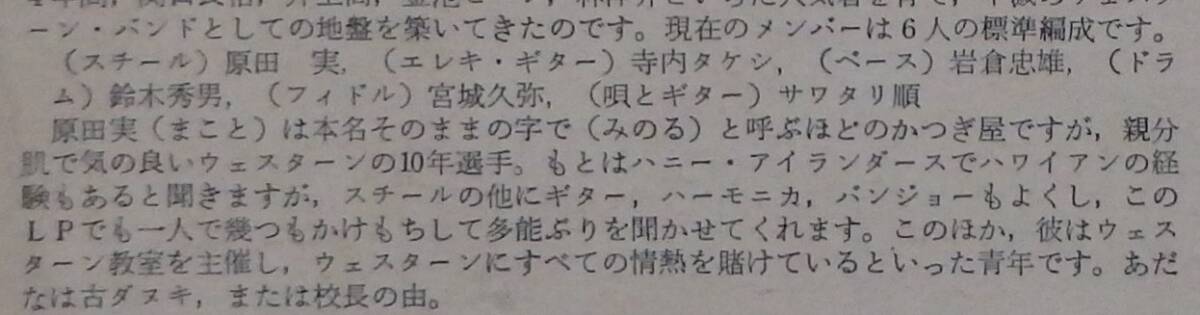 ーン・バンドとしての地盤を築いてきたのです。現在のメンバーは6人の標準編成です。
（スチール）原田　実，（エレキ・ギター）寺内タケシ，（ベース）岩倉忠雄，（ドラ
ム）鈴木秀男，（フィドル）宮城久弥，（唄とギター）サワタリ順
原田実（まこと）は本名そのままの字で（みのる）と呼ぶほどのかつぎ屋ですが，親分
肌で気の良いウェスターンの10年選手。もとはハニー・アイランダースでハワイアンの経
験もあると聞きますが，スチールの他にギター，ハーモニカ，バンジョーもよくし，この
ＬＰでも一人で幾つもかけもちして多能ぶりを聞かせてくれます。このほか，彼はウェス
ターン教室を主催し，ウェスターンにすべての情熱を賭けているといった青年です。あだ
なは古ダヌキ，または校長の由。